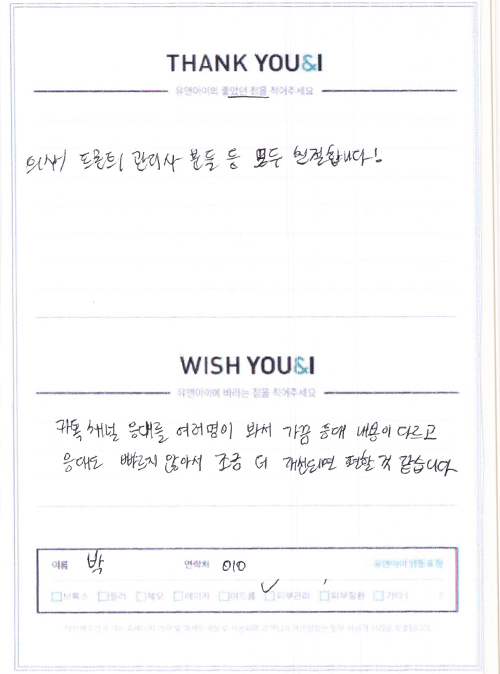 THANK YOU&I
유앤아이의 좋았던 점을 적어주세요
의사, 프론트, 관리사 분들 등 모두 친절합니다!
WISH YOU&I
유앤아이에 바라는 점을 적어주세요
카톡 채널 응대를 여러명이 봐서 가끔 응대 내용이 다르고
응대도 빠르지 않아서 조금 더 개선되면 편할 것 같습니다
이름 박 연락처 010 유앤아이
보톡스 필러 제모 레이저 여드름 피부관리 피부질환 기타 (